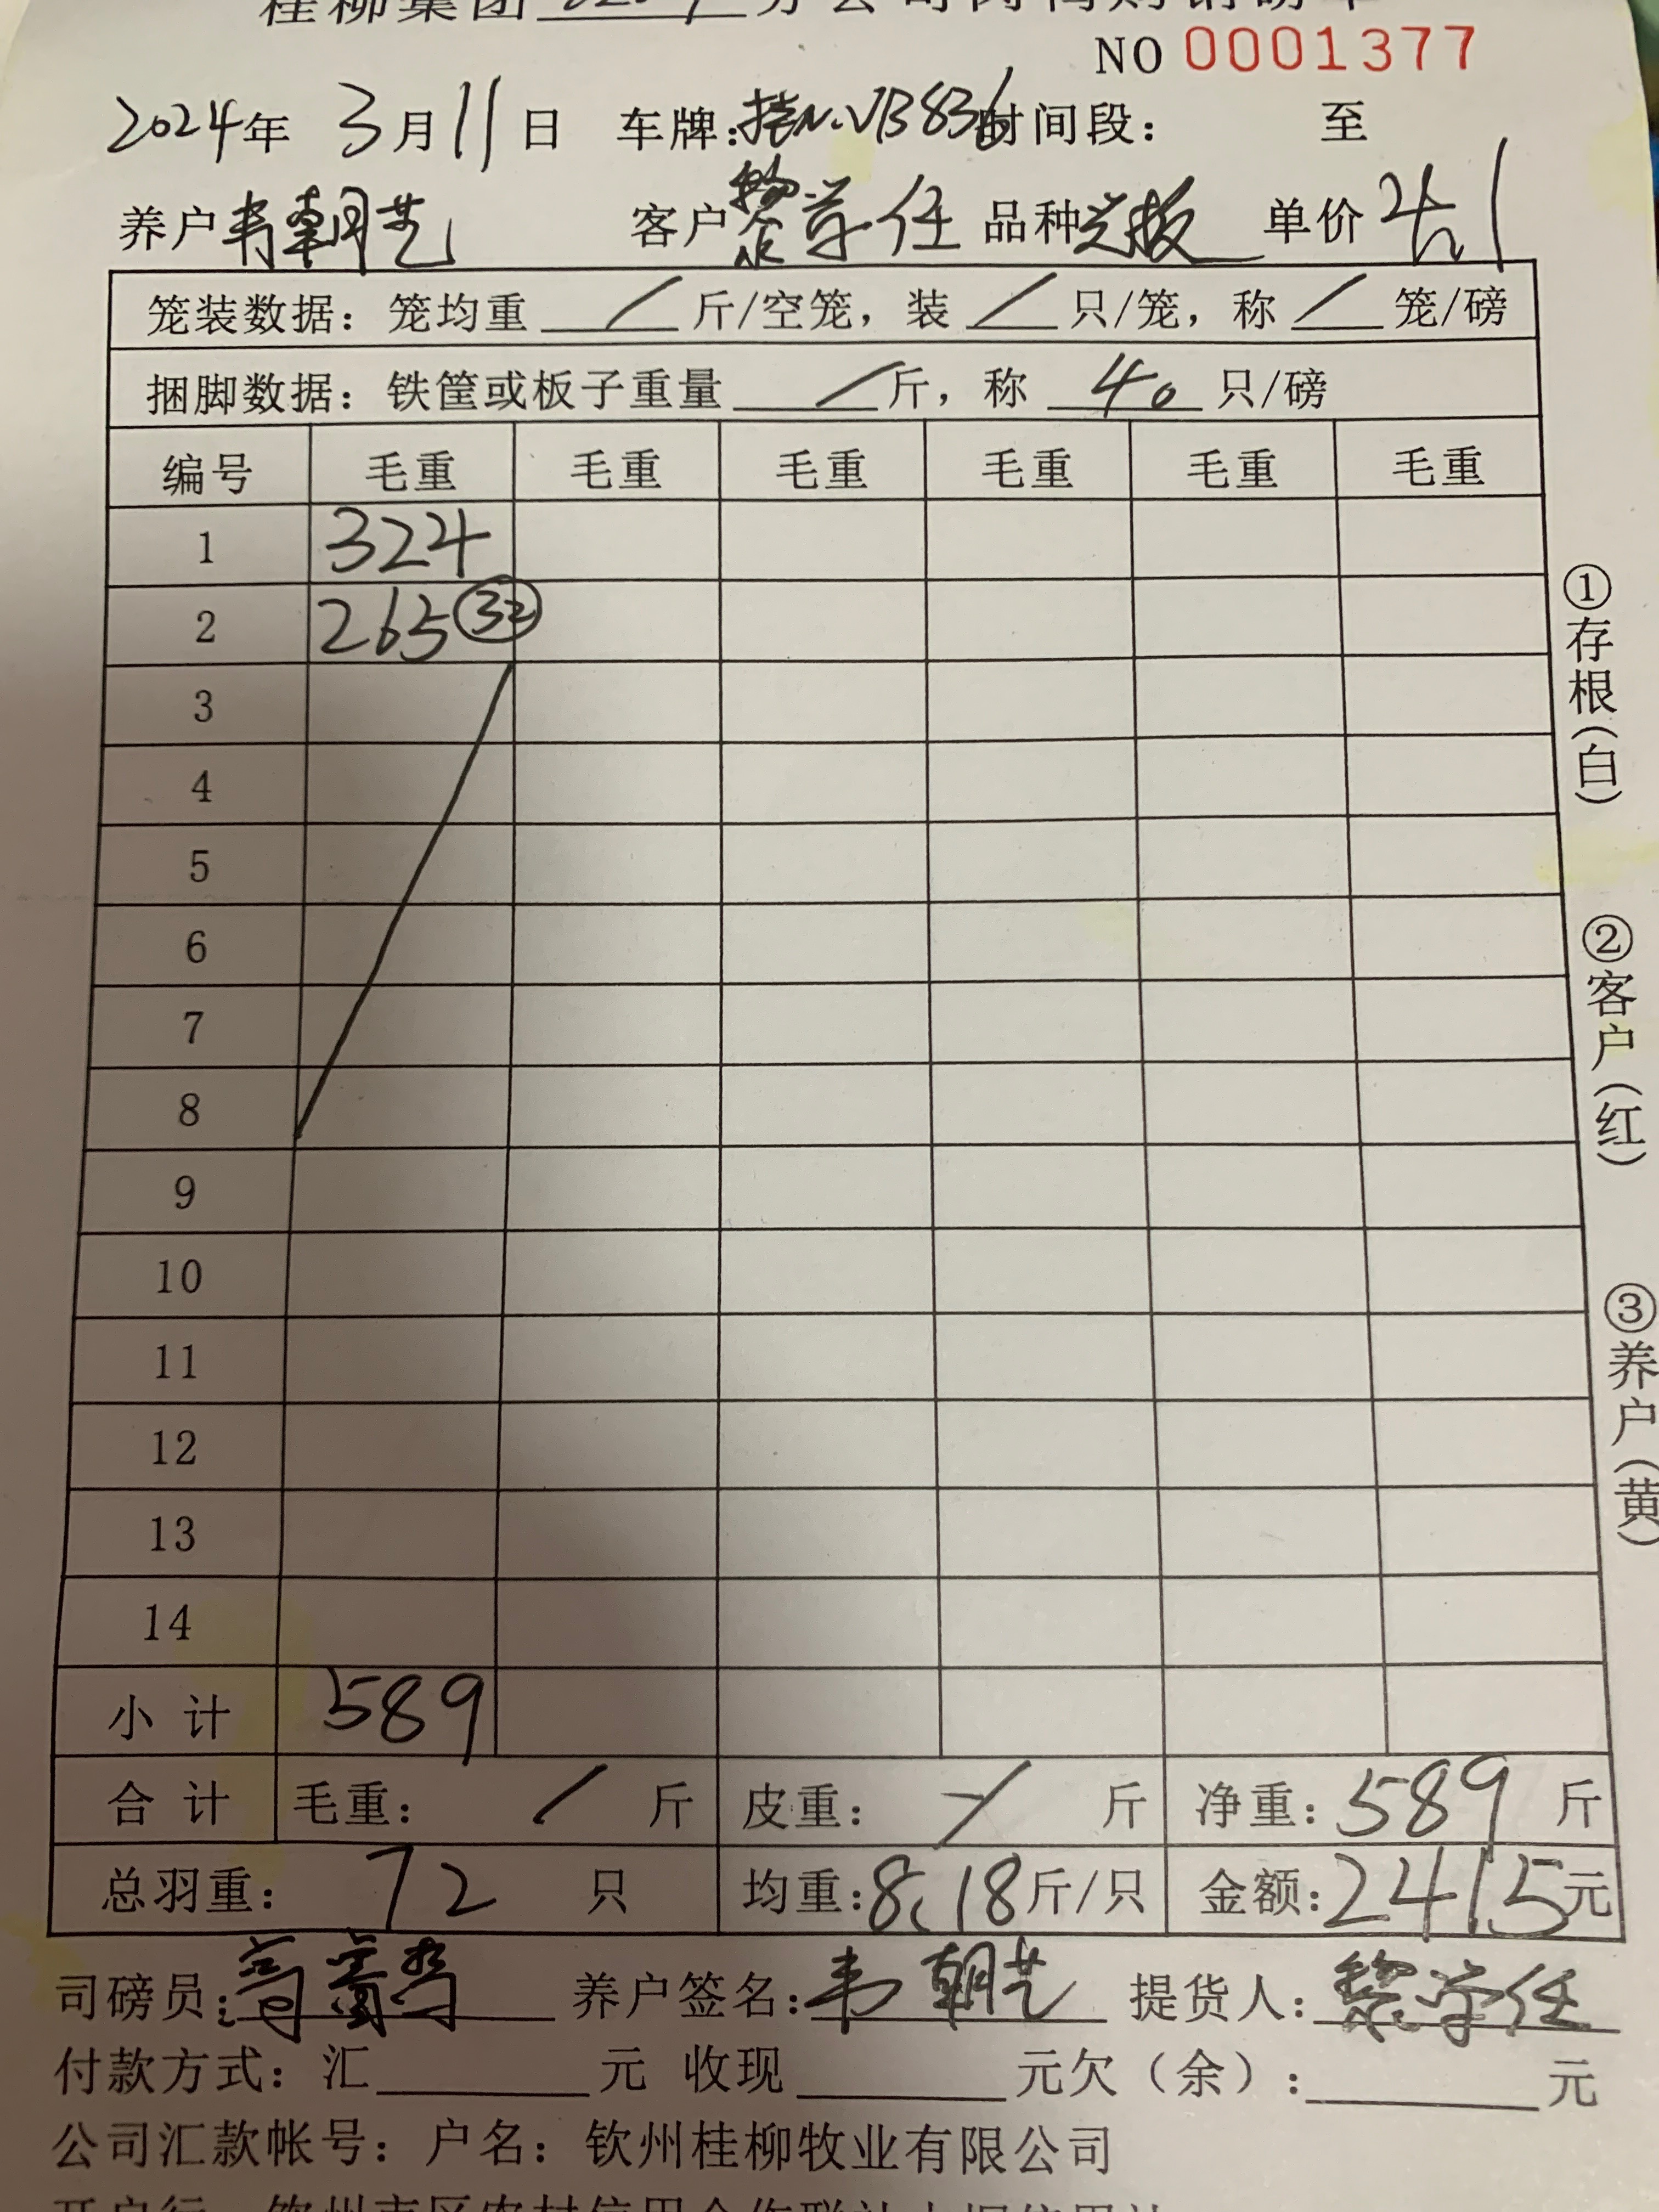 桂柳集团 分公司肉
NO 0001377
2024年 3月11日 车牌:桂N.VB836 时间段: 至
养户 韦朝艺 客户 黎学任 品种 单价 4.1
笼装数据: 笼均重 / 斤/空笼, 装 / 只/笼, 称 / 笼/磅
捆脚数据: 铁筐或板子重量 / 斤, 称 40 只/磅
编号 毛重 毛重 毛重 毛重 毛重 毛重
1 324
2 265 ㉜
3
4
5
6
7
8
9
10
11
12
13
14
小 计 589
合 计 毛重: / 斤 皮重: / 斤 净重: 589 斤
总羽重: 72 只 均重: 8.18 斤/只 金额: 2415 元
司磅员: 养户签名: 韦朝艺 提货人: 黎学任
付款方式: 汇 元 收现 元欠(余): 元
公司汇款帐号: 户名: 钦州桂柳牧业有限公司
①存根(白)
②客户(红)
③养户(黄)